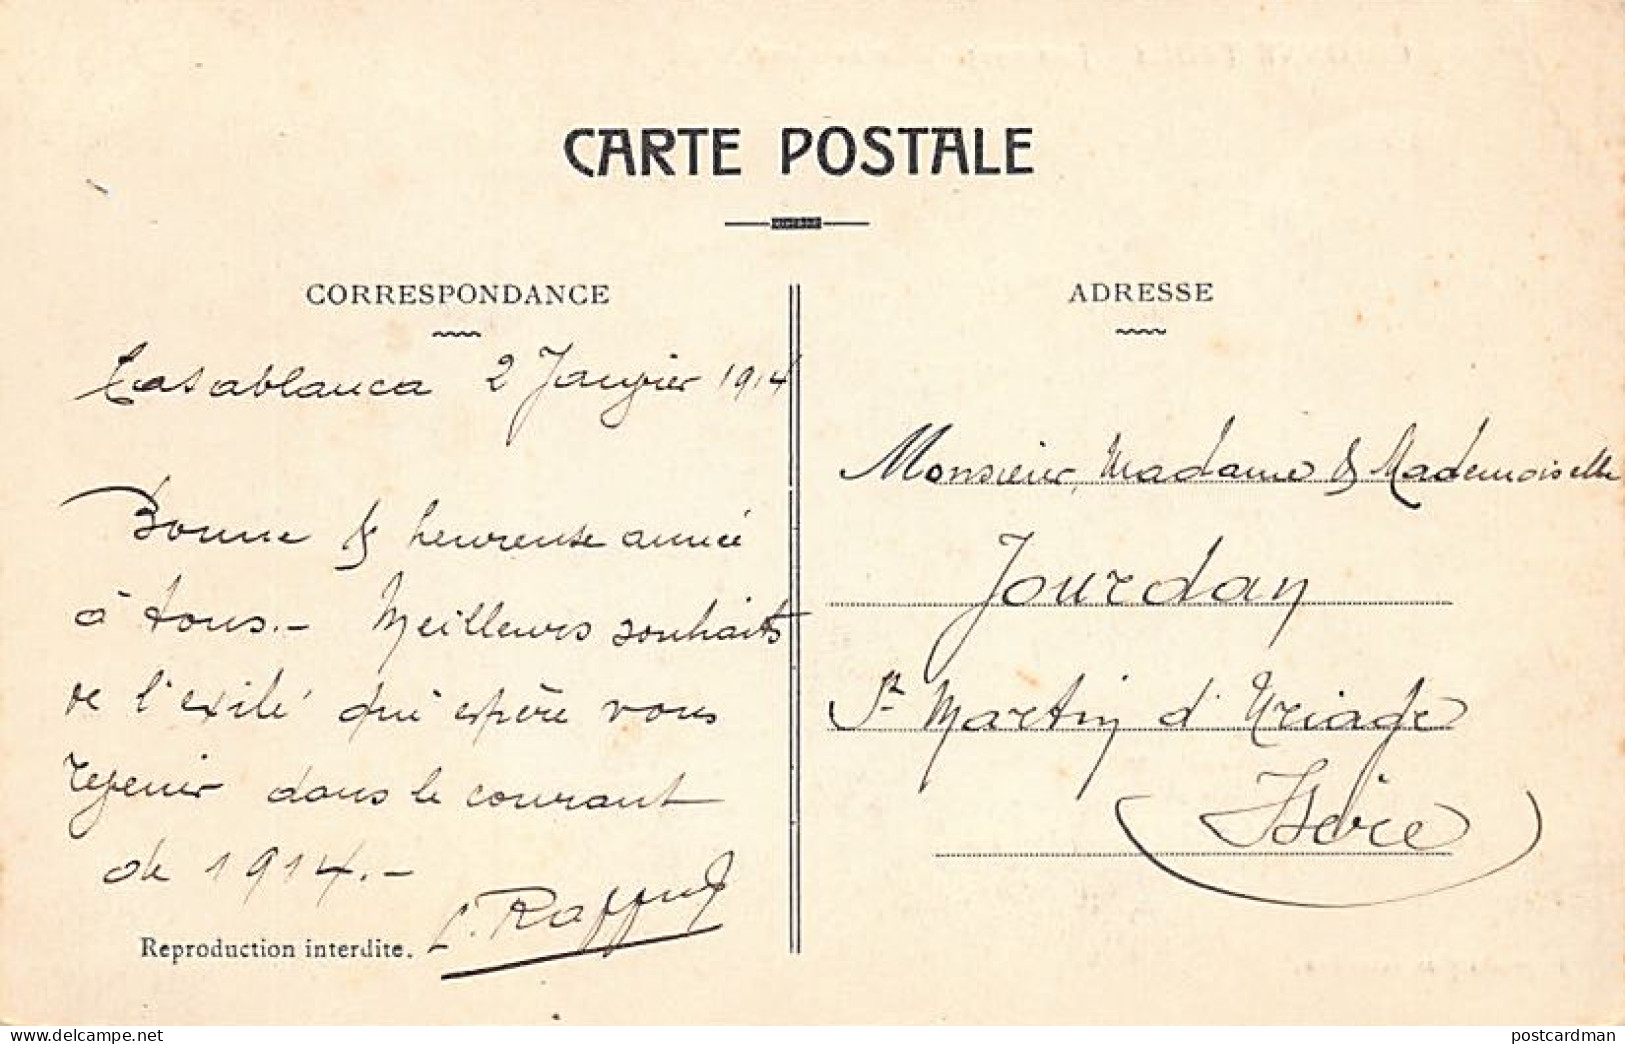 CARTE POSTALE
CORRESPONDANCE
Casablanca 2 Janvier 1914
Bonne & heureuse année
à tous. - Meilleurs souhaits
de l'exilé qui espère vous
revenir dans le courant
de 1914. -
Reproduction interdite.
ADRESSE
Monsieur, Madame & Mademoiselle
Jourdan
St Martin d'Uriage
(Isère)
www.delcampe.net
postcardman